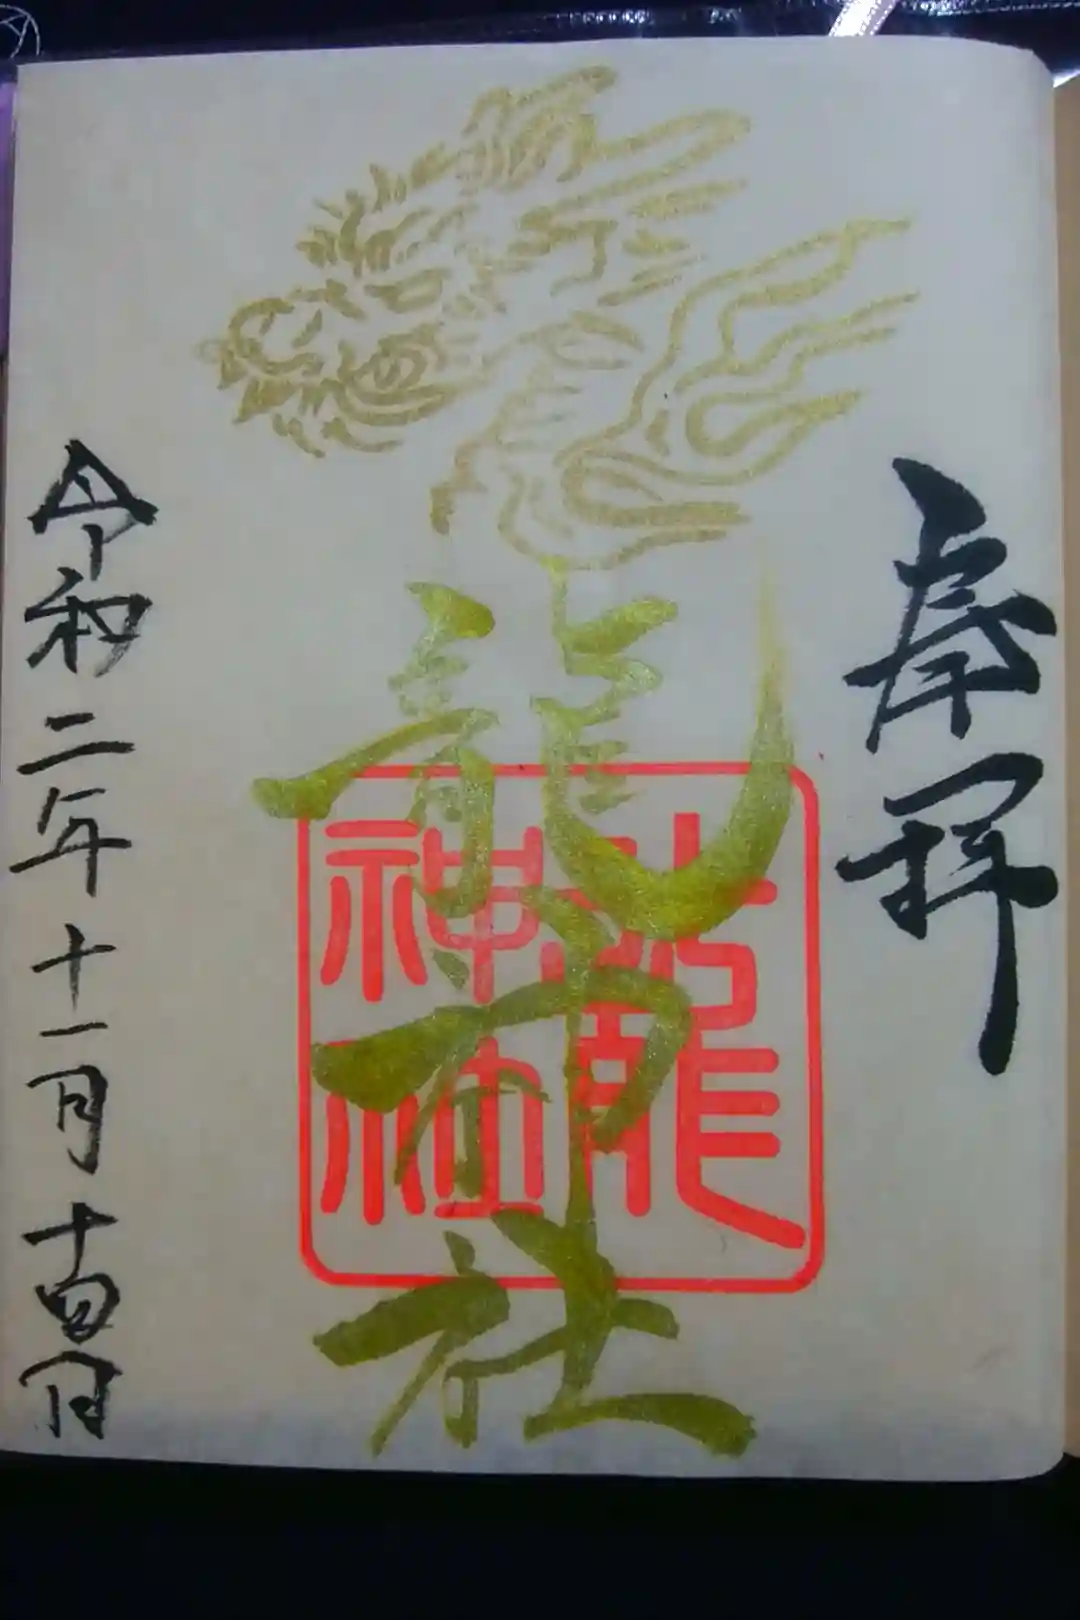 奉拝
龍神社
龍神社
令和二年十一月十四日